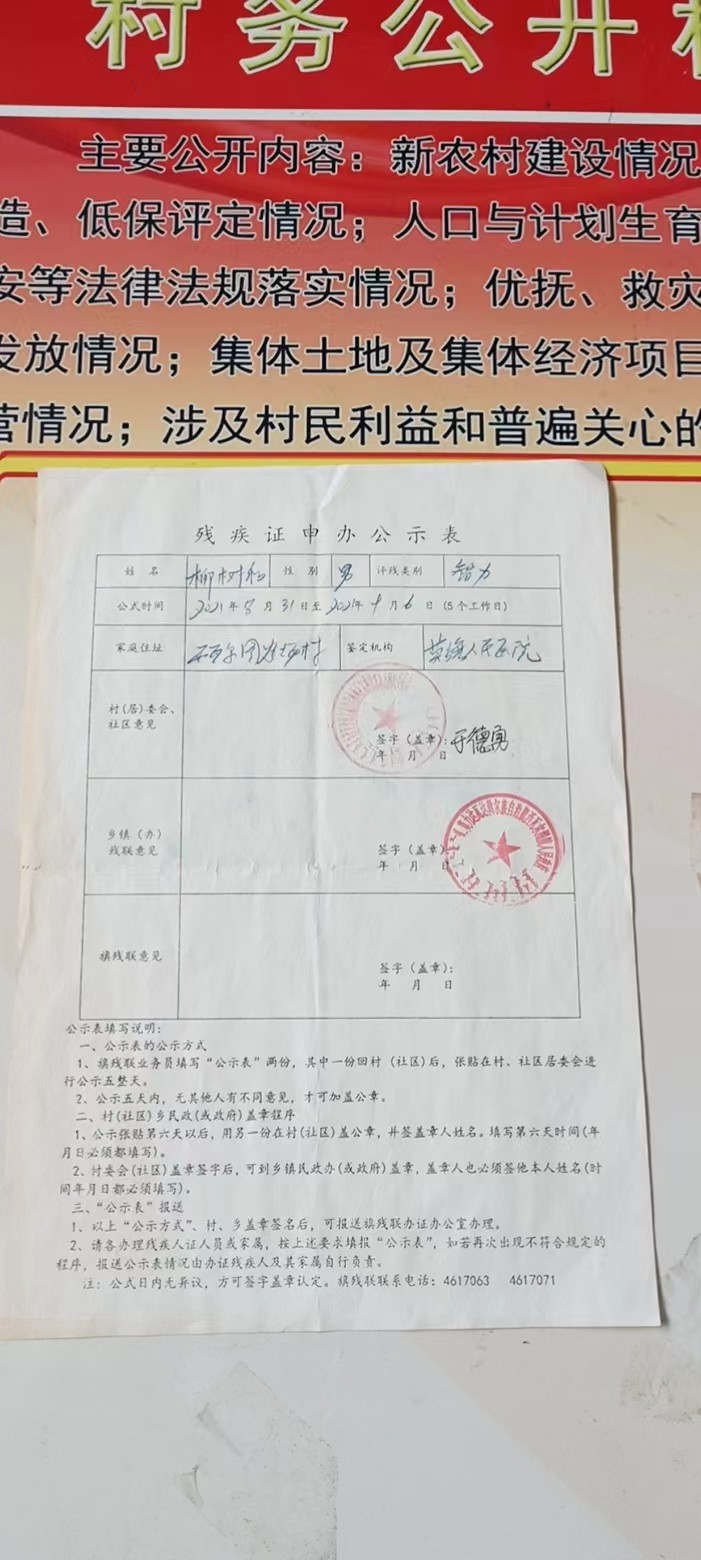 村务公开
主要公开内容：新农村建设情况
造、低保评定情况；人口与计划生育
安等法律法规落实情况；优抚、救灾
发放情况；集体土地及集体经济项目
营情况；涉及村民利益和普遍关心的
残疾证申办公示表
姓名 柳树和 性别 男 评残类别 智力
公式时间 2021年8月31日至2021年9月6日（5个工作日）
家庭住址 鉴定机构 莫旗人民医院
村(居)委会、
社区意见
签字（盖章）：于德勇
年 月 日
乡镇（办）
残联意见
签字（盖章）
年 月 日
旗残联意见
签字（盖章）：
年 月 日
公示表填写说明：
一、公示表的公示方式
1、旗残联业务员填写“公示表”两份，其中一份回村（社区)后，张贴在村、社区居委会进
行公示五整天。
2、公示五天内，无其他人有不同意见，才可加盖公章。
二、村(社区)乡民政(或政府)盖章程序
1、公示张贴第六天以后，用另一份在村(社区)盖公章，并签盖章人姓名。填写第六天时间(年
月日必须都填写)。
2、付委会(社区)盖章签字后，可到乡镇民政办(或政府)盖章，盖章人也必须签他本人姓名(时
间年月日都必须填写)。
三、“公示表”报送
1、以上“公示方式”、村、乡盖章签名后，可报送旗残联办证办公室办理。
2、请各办理残疾人证人员或家属，按上述要求填报“公示表”，如若再次出现不符合规定的
程序，报送公示表情况由办证残疾人及其家属自行负责。
注：公式日内无异议，方可签字盖章认定。旗残联联系电话：4617063 4617071